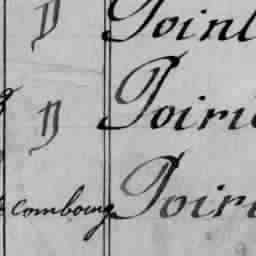 D Poinl
D Poiri
combourg Poiri